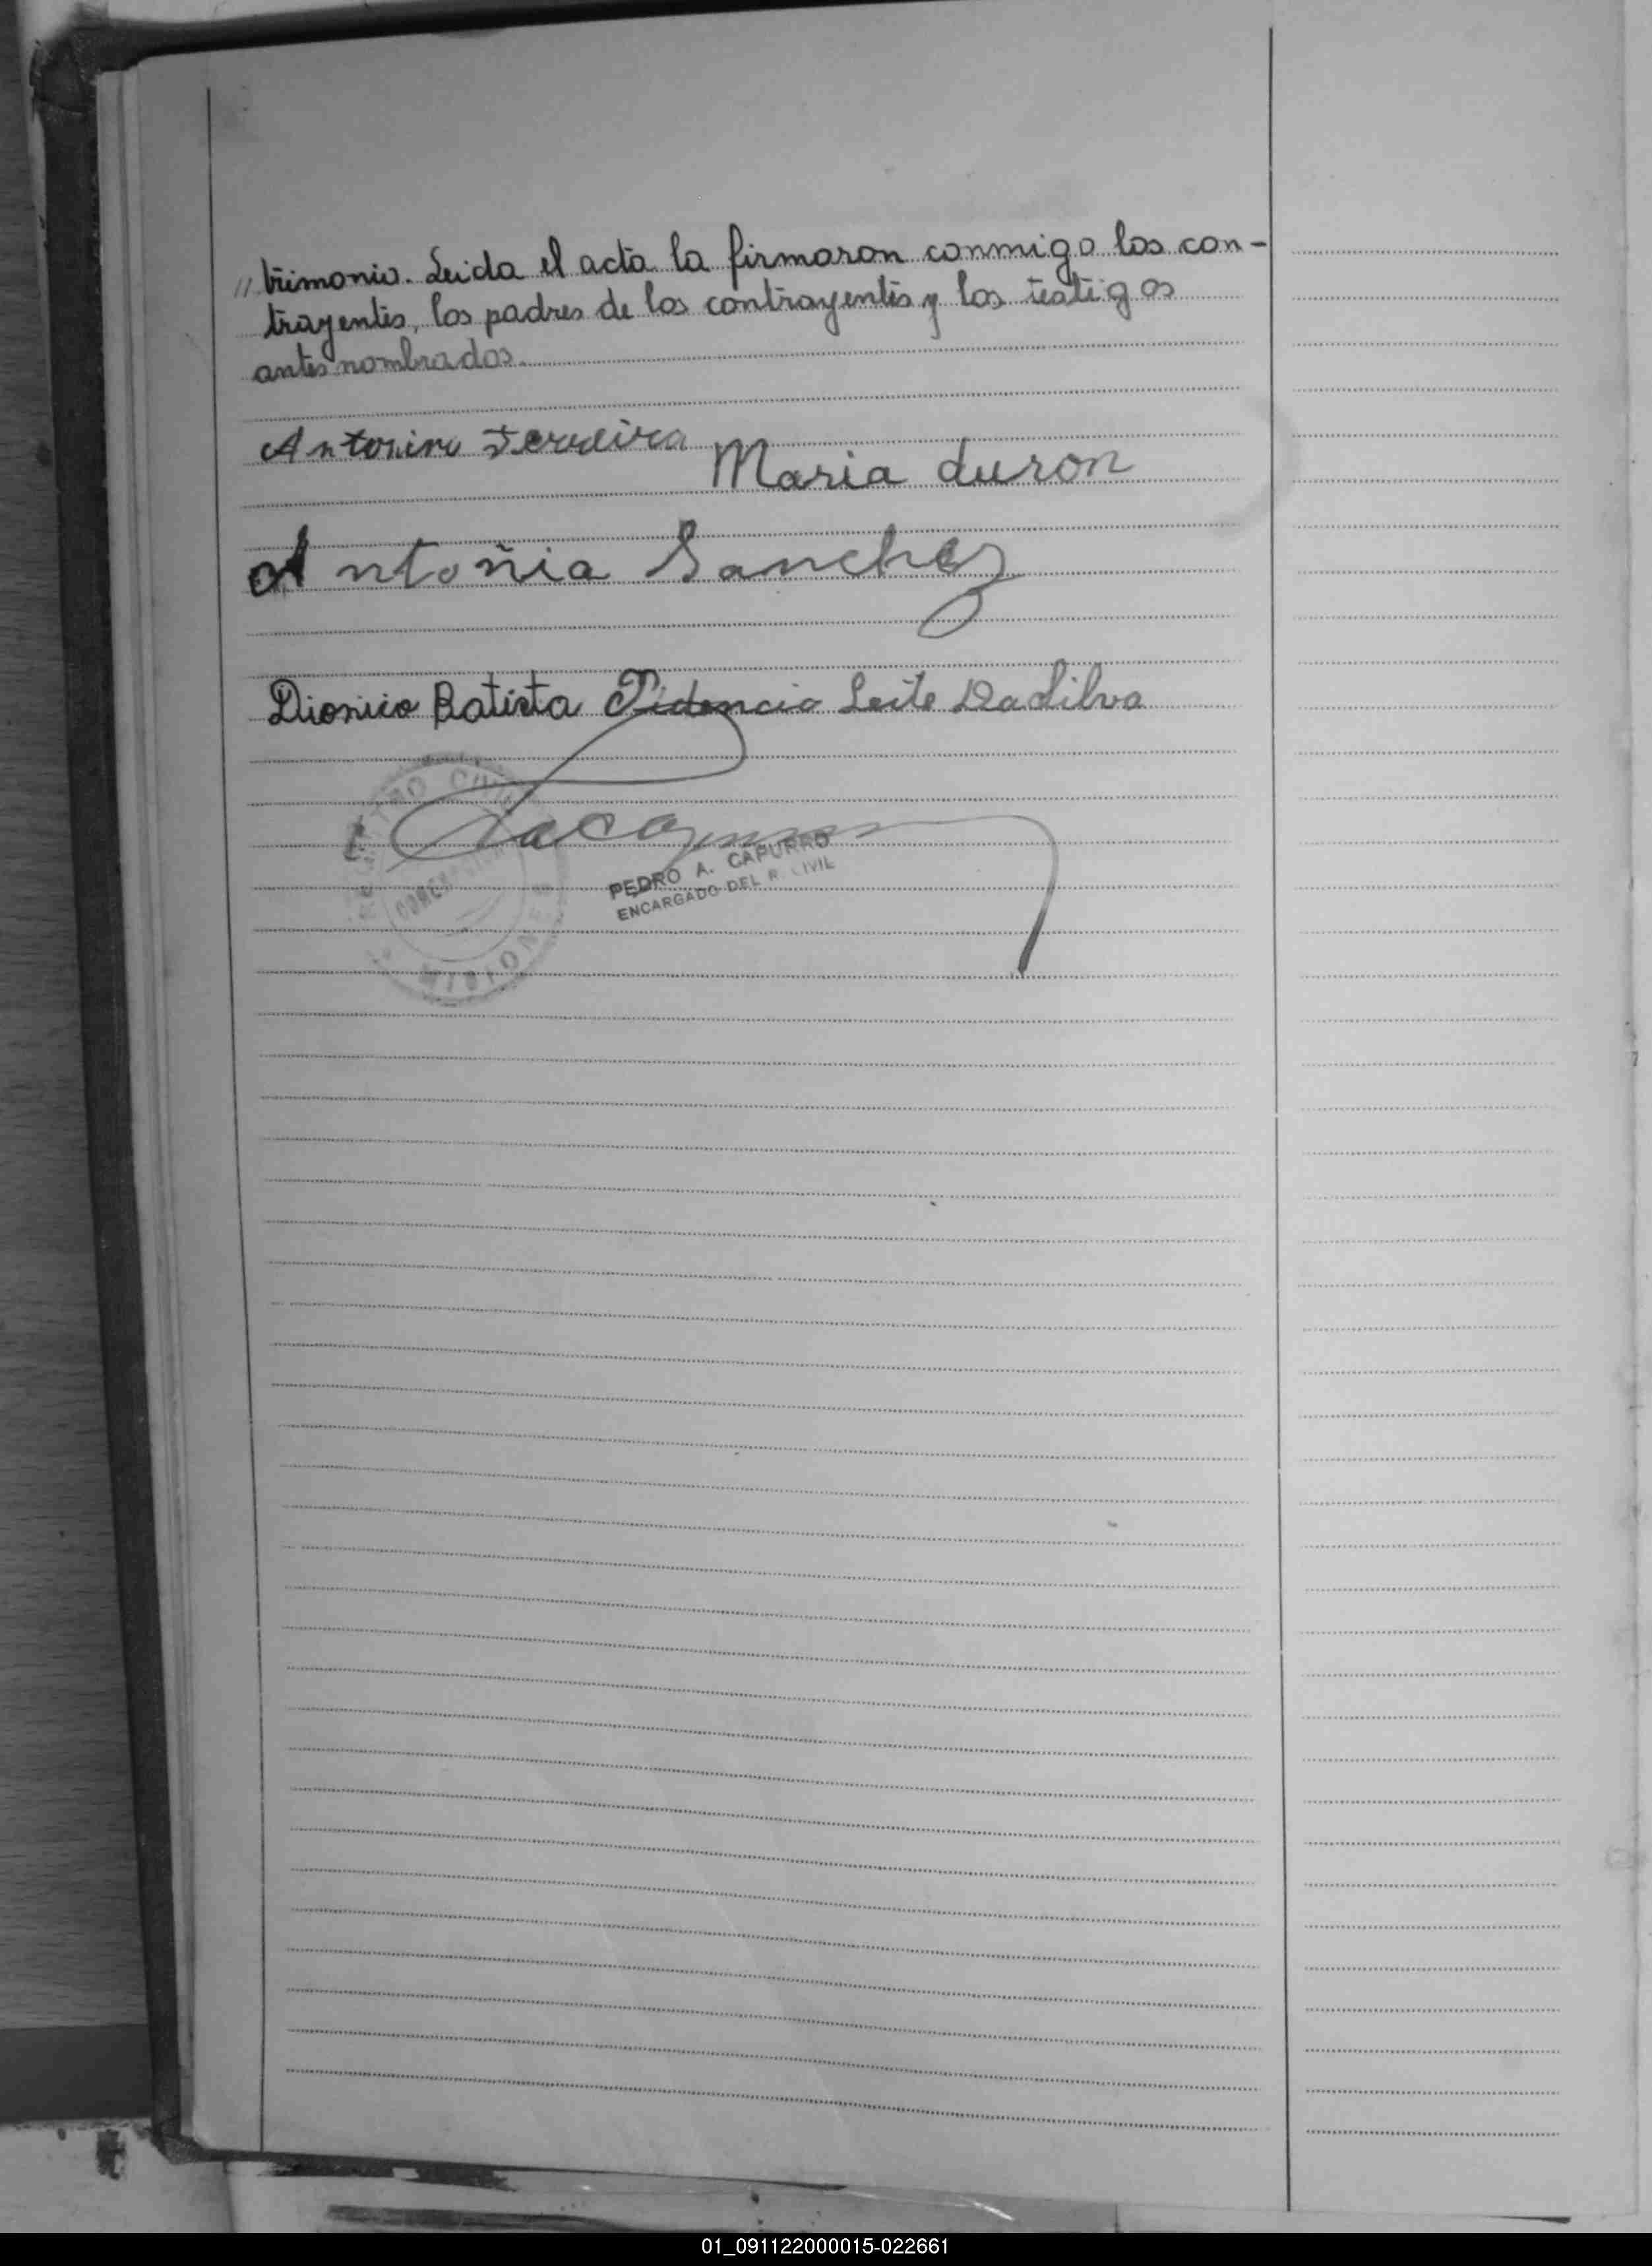 // trimonio. Leida el acta la firmaron conmigo los con-
trayentes, los padres de los contrayentes y los testigos
antes nombrados.
Antonino Ferreira
Maria duron
Antoñia Sanchez
Dionicio Batista Fidencio Leite Da Silva
REGISTRO CIVIL
MISIONES
PEDRO A. CAPURRO
ENCARGADO DEL R. CIVIL
01_091122000015-022661